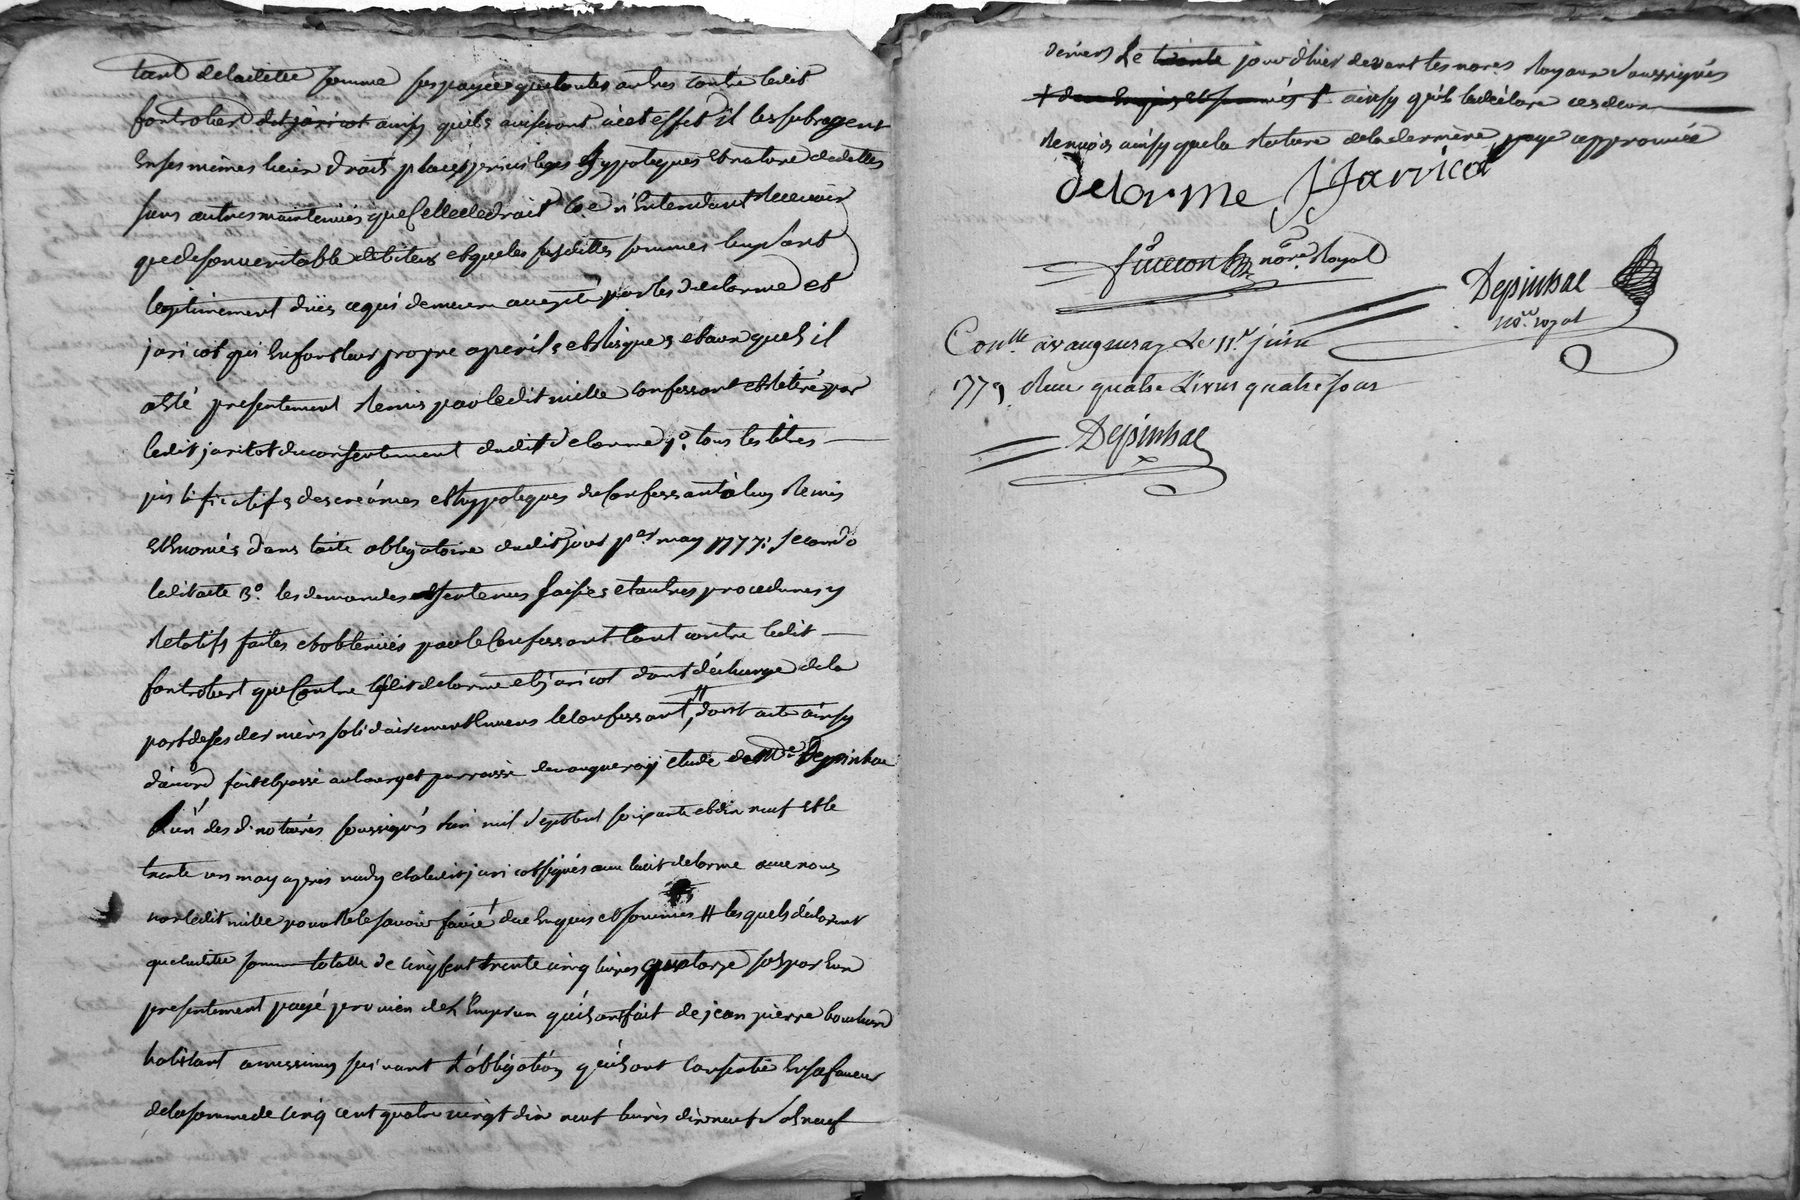 tant de ladite somme sus payée que toutes autres contre ledit
fontrobert dit jaricot ainsy quils aviseront à cet effet il les subrogent
en ses mêmes lieu droits place privileges hypoteques et nature de dettes
sans autres maintenües que celle de droit &e n'entendant recevoir
que de son veritable debiteur et que les susdittes sommes luy sont
legitimement düës ce qui demeure accepté par les delorme et
jaricot qui en font leur propre a perils et risques et aux quels il
a été presentement remis par ledit mille confessant et retiré par
ledit jaricot du consentement dudit delorme 1º. tous les titres
justificatifs des creances et hypoteques du confessant à luy remis
et enoncés dans l'acte obligatoire dudit jour per may 1777; secondo
ledit acte 3º. les demandes sentences saisies et autres procedures y
relatifs faites et obtenües par le confessant tant contre ledit
fontrobert que contre lesdit delorme et jaricot dont décharge de la
part de ses derniers solidairement envers le confessant, dont acte ainsy
d'accord fait et passé au bourg et parroisse de vaugneray etude de Me Depinhac
l'un des d. notaires soussignés l'an mil sept cent soixante et dix neuf et le
trente un may après midy et a ledit jaricot signés avec ledit delorme avec nous
non ledit mille pour ne le savoir faire de ce enquis et sommés # lesquels déclarent
que ladite somme totalle de cinq cent trente cinq livres quatorze sols par eux
presentement payé provien de l'emprun qu'ils ont fait de jean pierre bouchard
habitant a messimy suivant l'obligation qu'ils ont consentie en sa faveur
de la somme de cinq cent quatre vingt dix neuf livres dix neuf sols neuf
deniers le trente jour d'hier devant les nores. royaux soussignés
ainsy qu'ils le déclare ces deux
renvois ainsy que la rature de la derniere page approuvée
delorme Jarricot
nore. Royal
Depinhac
nore. royal
Conlle. à vaugneray Le 11e. juin
1779 Reçu quatre Livres quatre sous
Depinhac